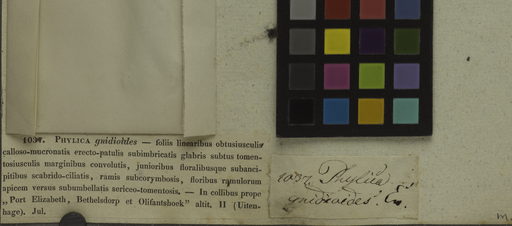 1037. PHYLICA gnidioides — foliis linearibus obtusiusculis
calloso-mucronatis erecto-patulis subimbricatis glabris subtus tomen-
tosiusculis marginibus convolutis, junioribus floralibusque subanci-
pitibus scabrido-ciliatis, ramis subcorymbosis, floribus ramulorum
apicem versus subumbellatis sericeo-tomentosis. — In collibus prope
„Port Elizabeth, Bethelsdorp et Olifantshoek" altit. II (Uiten-
hage). Jul.
1037 Phylica
gnidioides.
M.